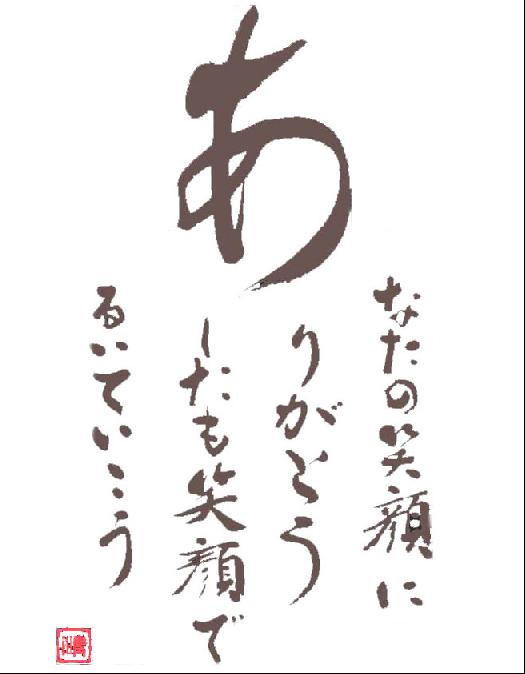 あ
なたの笑顔に
りがとう
したも笑顔で
るいていこう